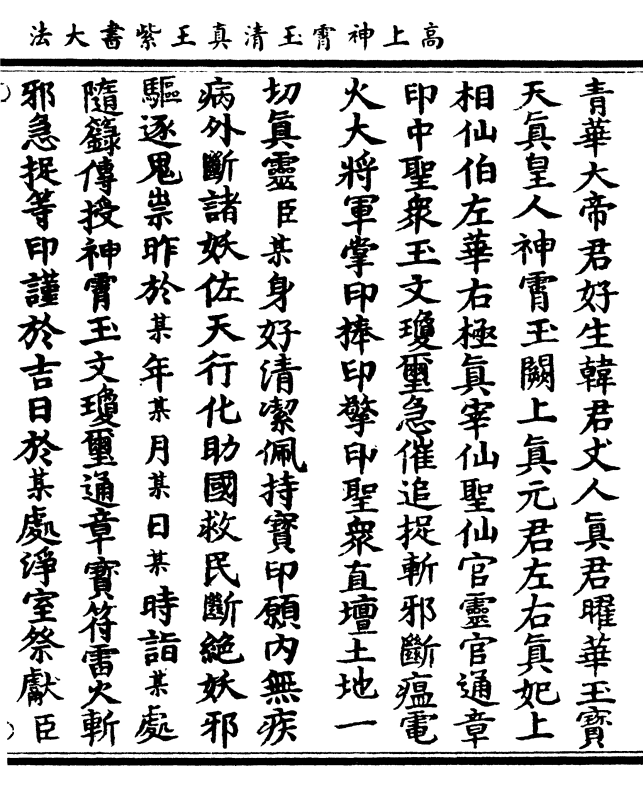 高上神霄玉清真王紫書大法
青華大帝君好生韓君丈人眞君曜華玉寳
天眞皇人神霄玉闕上眞元君左右眞妃上
相仙伯左華右極眞宰仙聖仙官靈官通章
印中聖衆玉文瓊璽急催追捉斬邪斷瘟電
火大將軍掌印捧印擎印聖衆直壇土地一
切眞靈臣某身好清潔佩持寳印願內無疾
病外斷諸妖佐天行化助國救民斷絶妖邪
驅逐鬼祟昨於某年某月某日某時詣某處
隨籙傳授神霄玉文瓊璽通章寳符雷火斬
邪急捉等印謹於吉日於某處淨室祭獻臣